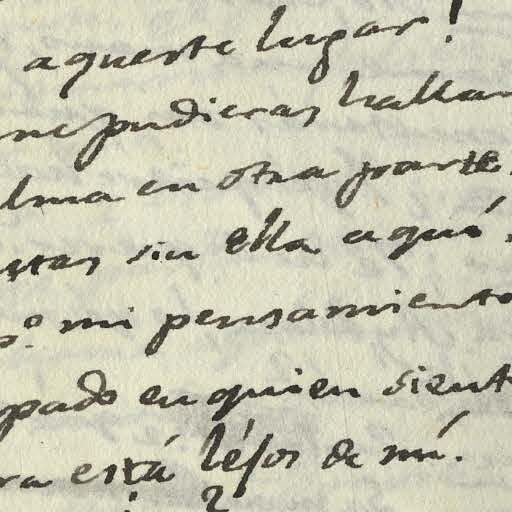 aqueste lugar!
me pudieras hallar
lma en otra parte.
stas sin ella aquí.
pº mi pensamiento
pado en quien sient
ra está léjos de mí.